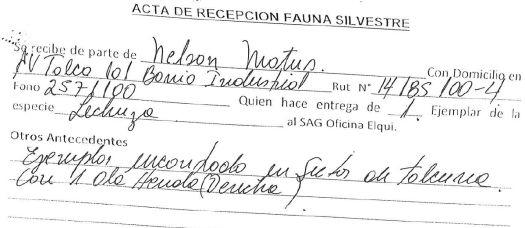 ACTA DE RECEPCION FAUNA SILVESTRE
Se recibe de parte de Nelson Matus. Con Domicilio en
AV Talca 101 Barrio Industrial Rut N° 14185100-4
Fono 2571100 Quien hace entrega de 1. Ejemplar de la
especie Lechuza al SAG Oficina Elqui.
Otros Antecedentes
Ejemplar encontrado en Sector de Talcuna.
Con 1 ala Herida (Derecha).